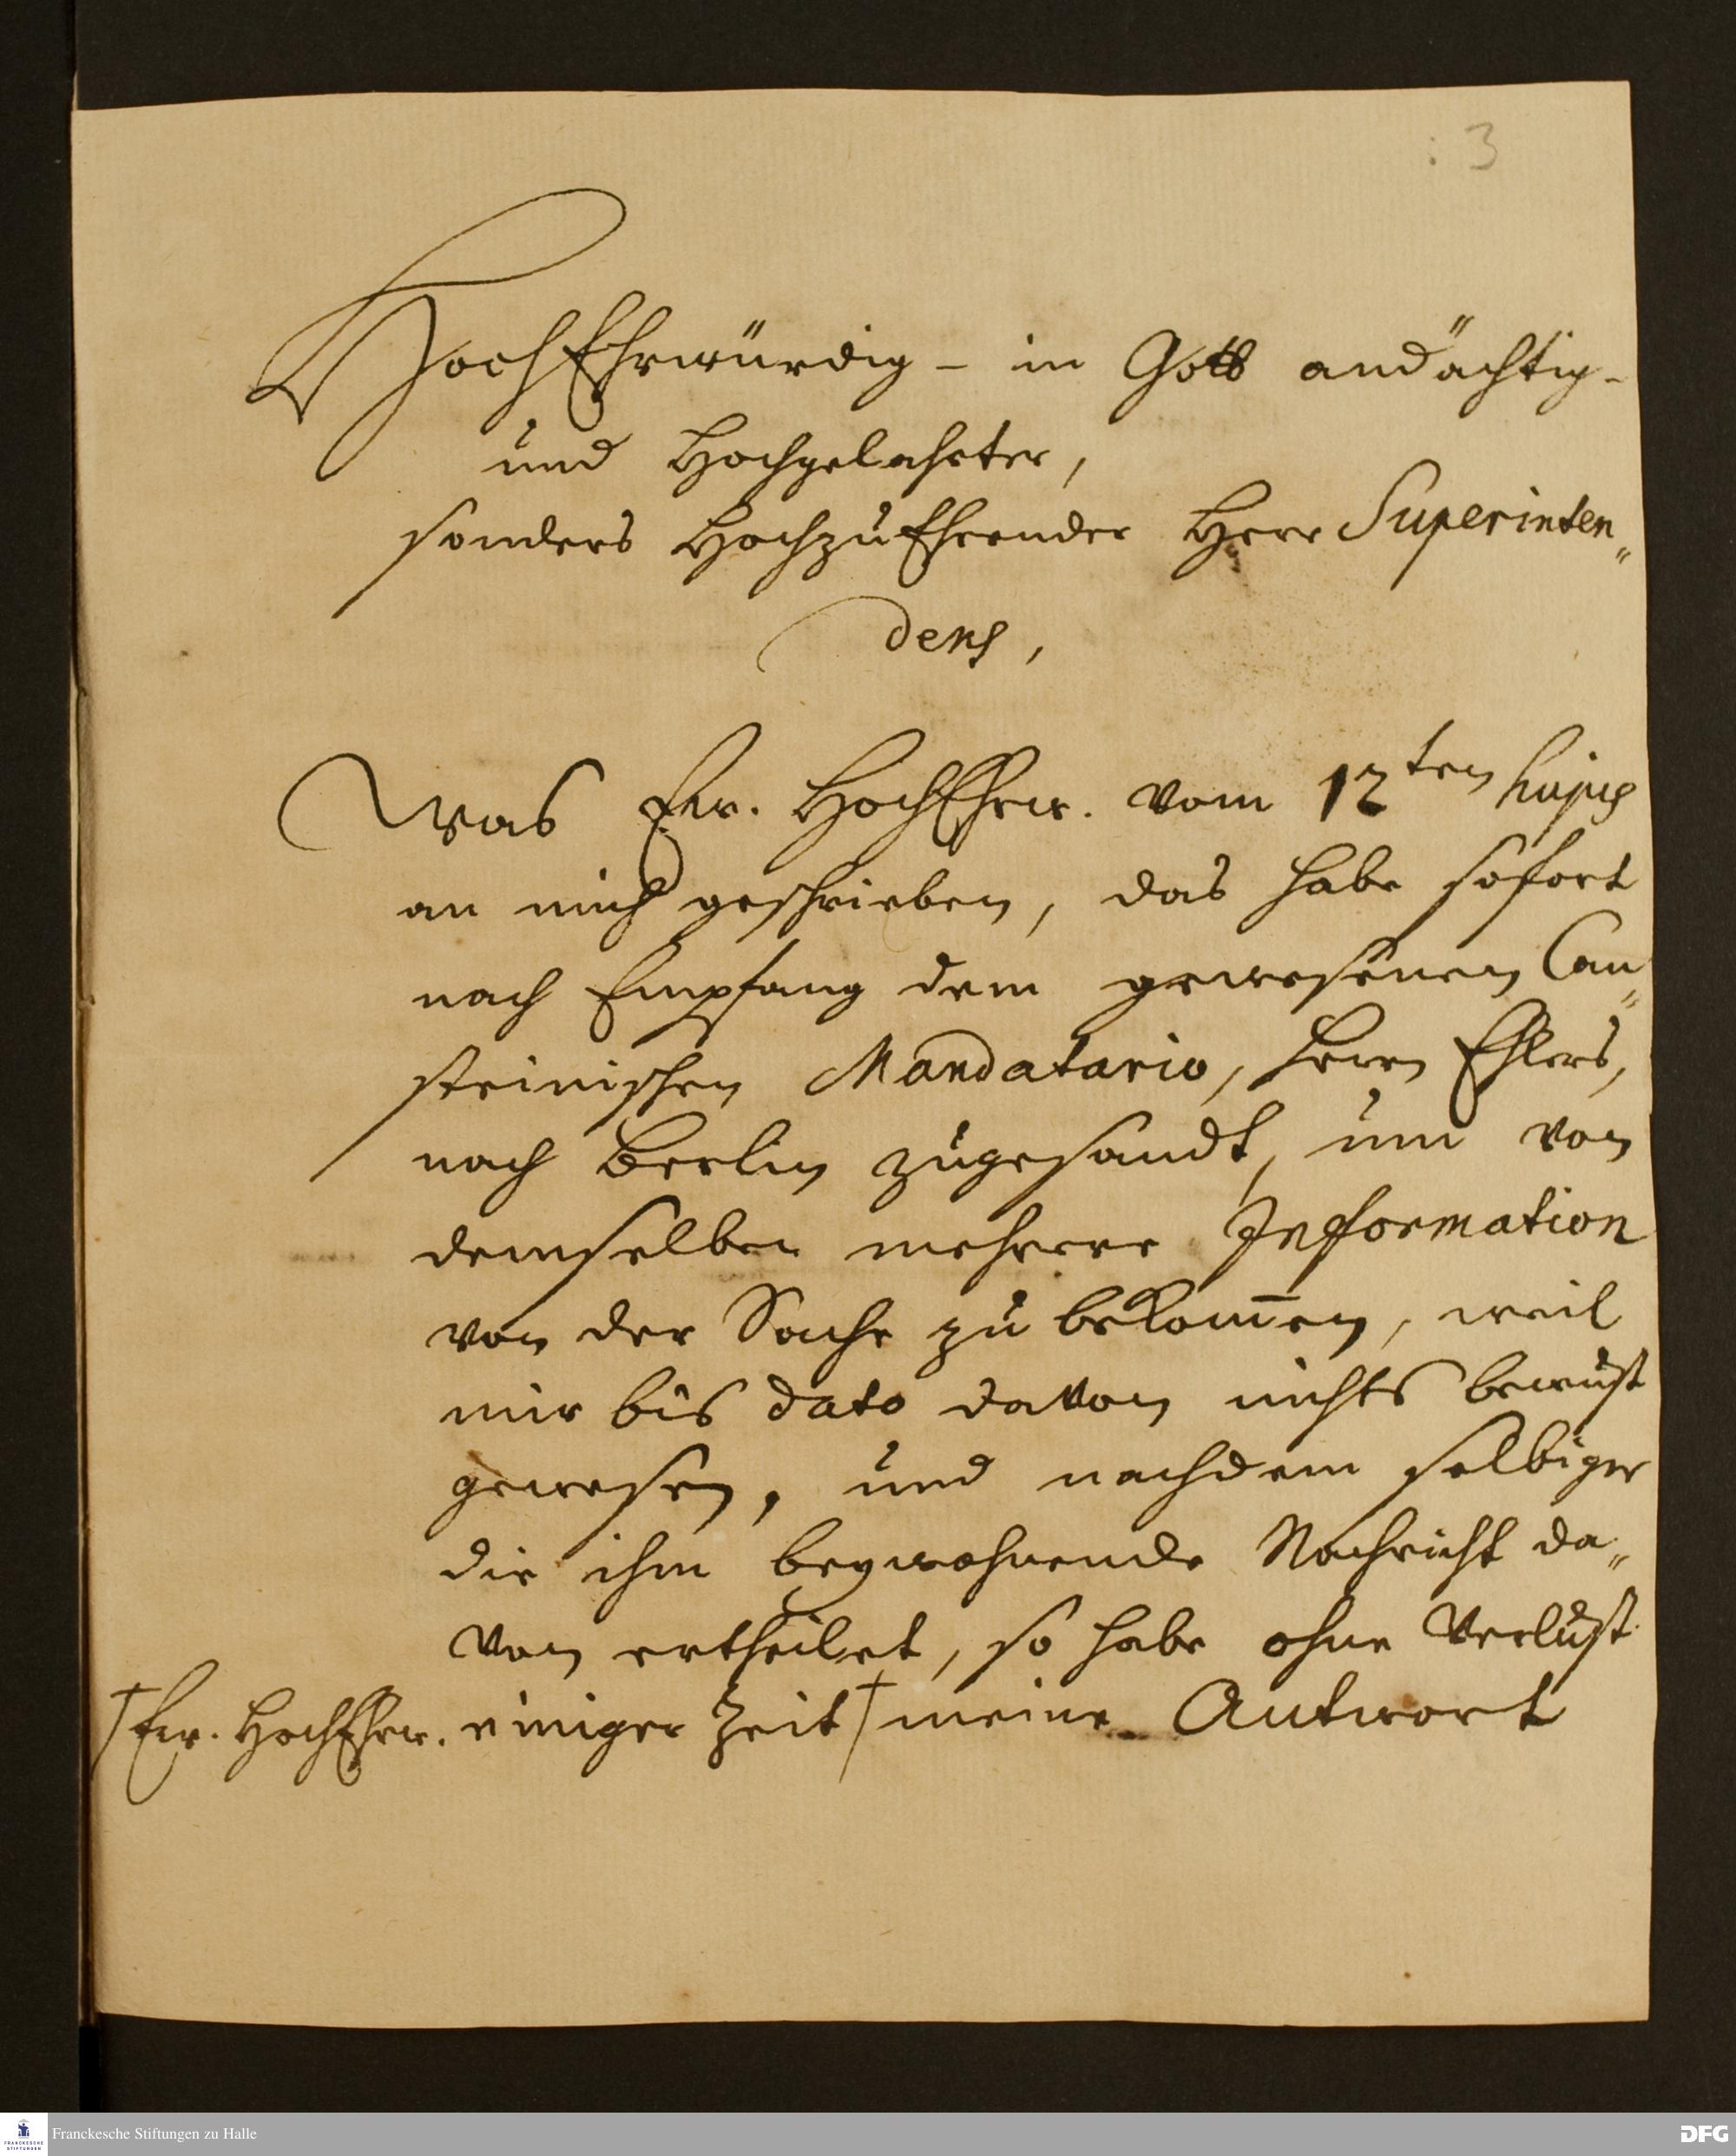 : 3
HochEhrwürdig - in Gott andächtig-
und Hochgelahrter,
sonders HochzuEhrender Herr Superinten„
dens,
Was Ew. HochEhrw. vom 12ten hujus
an mich geschrieben, das habe sofort
nach Empfang dem gewesenen Can„
steinischen Mandatario, Herrn Ehlers,
nach Berlin zugesandt, um von
demselben mehrere Information
von der Sache zu bekom̅en, weil
mir bis dato davon nichts bewust
gewesen, und nachdem selbiger
die ihm beywohnende Nachricht da„
von ertheilet, so habe ohne Verlust
† Ew. HochEhrw. einiger Zeit † meine Antwort
FRANCKESCHE STIFTUNGEN
Franckesche Stiftungen zu Halle
DFG